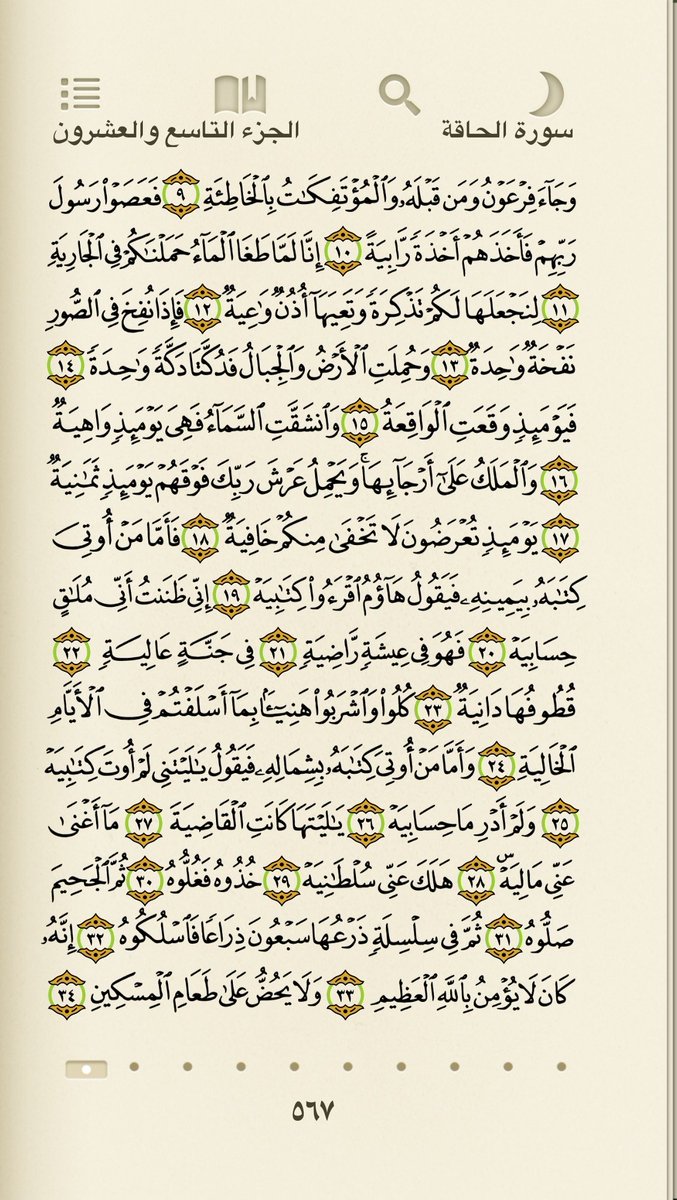 سورة الحاقة
الجزء التاسع والعشرون
وَجَآءَ فِرْعَوْنُ وَمَن قَبْلَهُۥ وَٱلْمُؤْتَفِكَٰتُ بِٱلْخَاطِئَةِ ٩ فَعَصَوْا۟ رَسُولَ
رَبِّهِمْ فَأَخَذَهُمْ أَخْذَةً رَّابِيَةً ١٠ إِنَّا لَمَّا طَغَا ٱلْمَآءُ حَمَلْنَٰكُمْ فِى ٱلْجَارِيَةِ
١١ لِنَجْعَلَهَا لَكُمْ تَذْكِرَةً وَتَعِيَهَآ أُذُنٌ وَٰعِيَةٌ ١٢ فَإِذَا نُفِخَ فِى ٱلصُّورِ
نَفْخَةٌ وَٰحِدَةٌ ١٣ وَحُمِلَتِ ٱلْأَرْضُ وَٱلْجِبَالُ فَدُكَّتَا دَكَّةً وَٰحِدَةً ١٤
فَيَوْمَئِذٍ وَقَعَتِ ٱلْوَاقِعَةُ ١٥ وَٱنشَقَّتِ ٱلسَّمَآءُ فَهِىَ يَوْمَئِذٍ وَاهِيَةٌ
١٦ وَٱلْمَلَكُ عَلَىٰٓ أَرْجَآئِهَا ۚ وَيَحْمِلُ عَرْشَ رَبِّكَ فَوْقَهُمْ يَوْمَئِذٍ ثَمَٰنِيَةٌ
١٧ يَوْمَئِذٍ تُعْرَضُونَ لَا تَخْفَىٰ مِنكُمْ خَافِيَةٌ ١٨ فَأَمَّا مَنْ أُوتِىَ
كِتَٰبَهُۥ بِيَمِينِهِۦ فَيَقُولُ هَآؤُمُ ٱقْرَءُوا۟ كِتَٰبِيَهْ ١٩ إِنِّى ظَنَنتُ أَنِّى مُلَٰقٍ
حِسَابِيَهْ ٢٠ فَهُوَ فِى عِيشَةٍ رَّاضِيَةٍ ٢١ فِى جَنَّةٍ عَالِيَةٍ ٢٢
قُطُوفُهَا دَانِيَةٌ ٢٣ كُلُوا۟ وَٱشْرَبُوا۟ هَنِيٓـًٔۢا بِمَآ أَسْلَفْتُمْ فِى ٱلْأَيَّامِ
ٱلْخَالِيَةِ ٢٤ وَأَمَّا مَنْ أُوتِىَ كِتَٰبَهُۥ بِشِمَالِهِۦ فَيَقُولُ يَٰلَيْتَنِى لَمْ أُوتَ كِتَٰبِيَهْ
٢٥ وَلَمْ أَدْرِ مَا حِسَابِيَهْ ٢٦ يَٰلَيْتَهَا كَانَتِ ٱلْقَاضِيَةَ ٢٧ مَآ أَغْنَىٰ
عَنِّى مَالِيَهْ ۜ ٢٨ هَلَكَ عَنِّى سُلْطَٰنِيَهْ ٢٩ خُذُوهُ فَغُلُّوهُ ٣٠ ثُمَّ ٱلْجَحِيمَ
صَلُّوهُ ٣١ ثُمَّ فِى سِلْسِلَةٍ ذَرْعُهَا سَبْعُونَ ذِرَاعًا فَٱسْلُكُوهُ ٣٢ إِنَّهُۥ
كَانَ لَا يُؤْمِنُ بِٱللَّهِ ٱلْعَظِيمِ ٣٣ وَلَا يَحُضُّ عَلَىٰ طَعَامِ ٱلْمِسْكِينِ ٣٤
٥٦٧